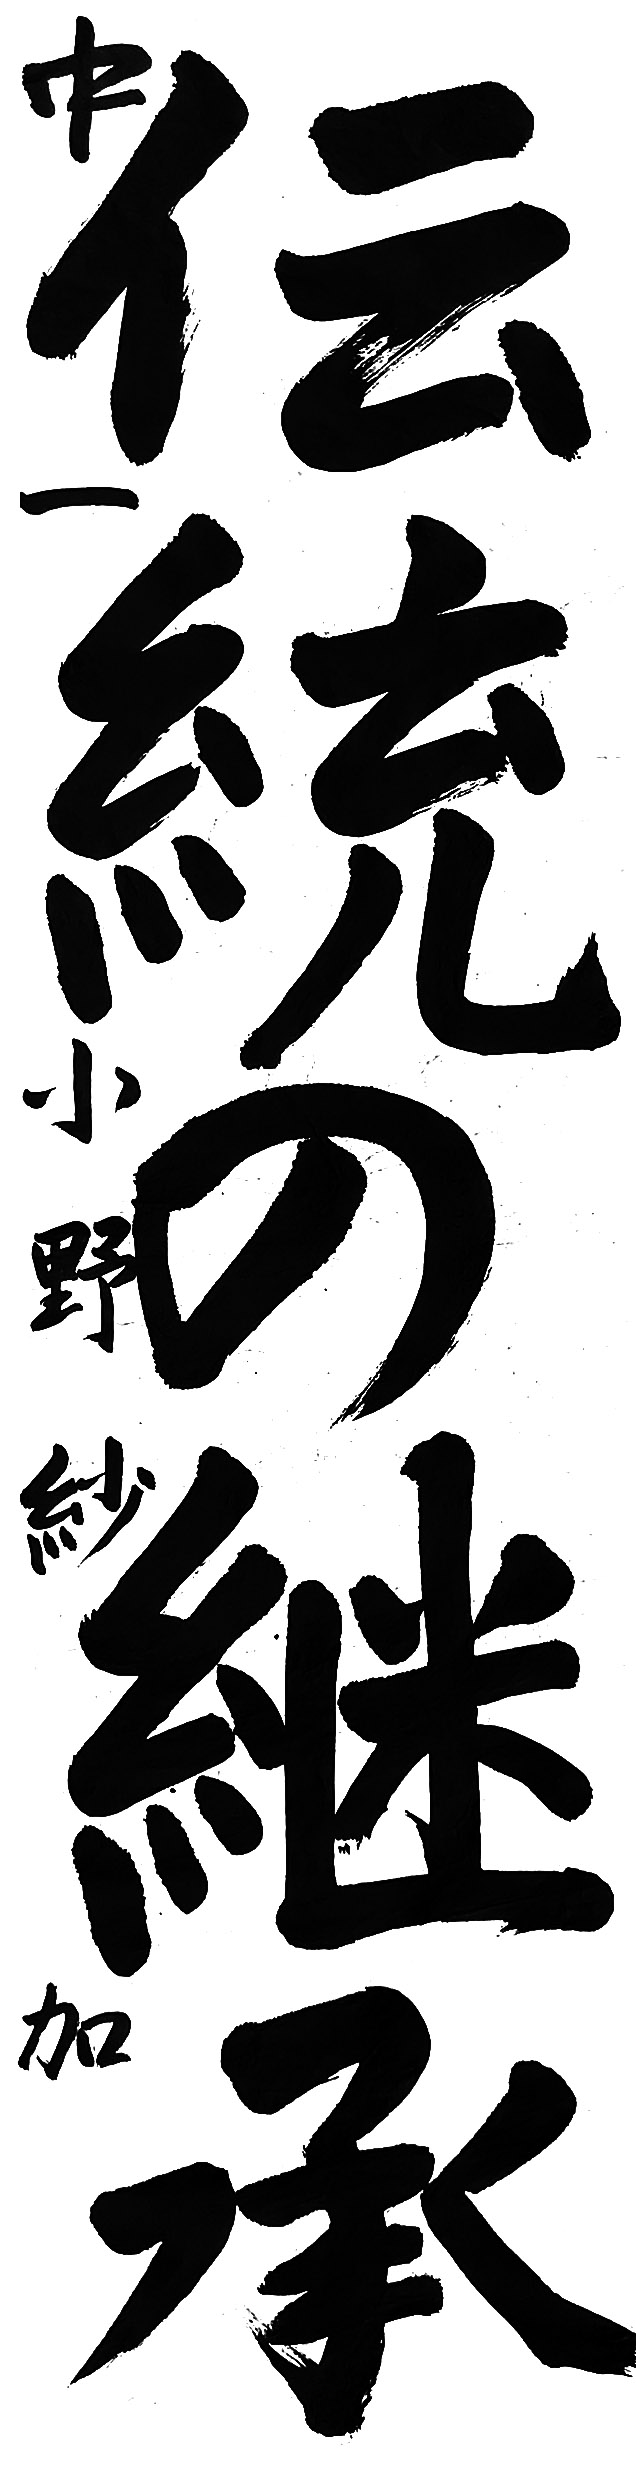 伝統の継承
中一 小野紗加